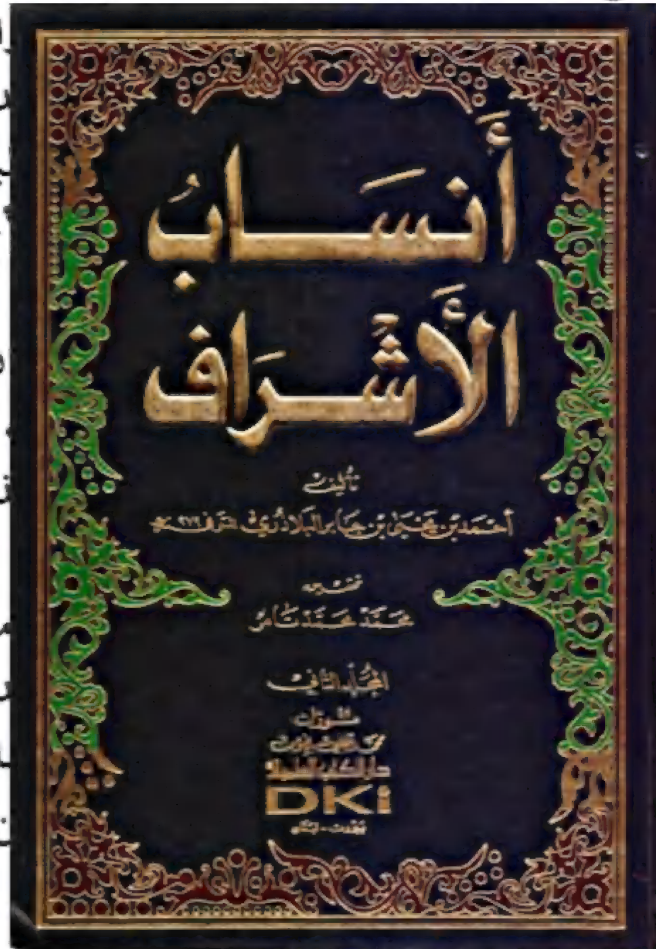 أَنسَابُ
الأَشْرَاف
تأليف
أحمد بن يحيى بن جابر البلاذري المتوفى ٢٧٩ هـ
محمد محمد تامر
المجلد الثاني
منشورات
دار الكتب العلمية
DKi
بيروت - لبنان